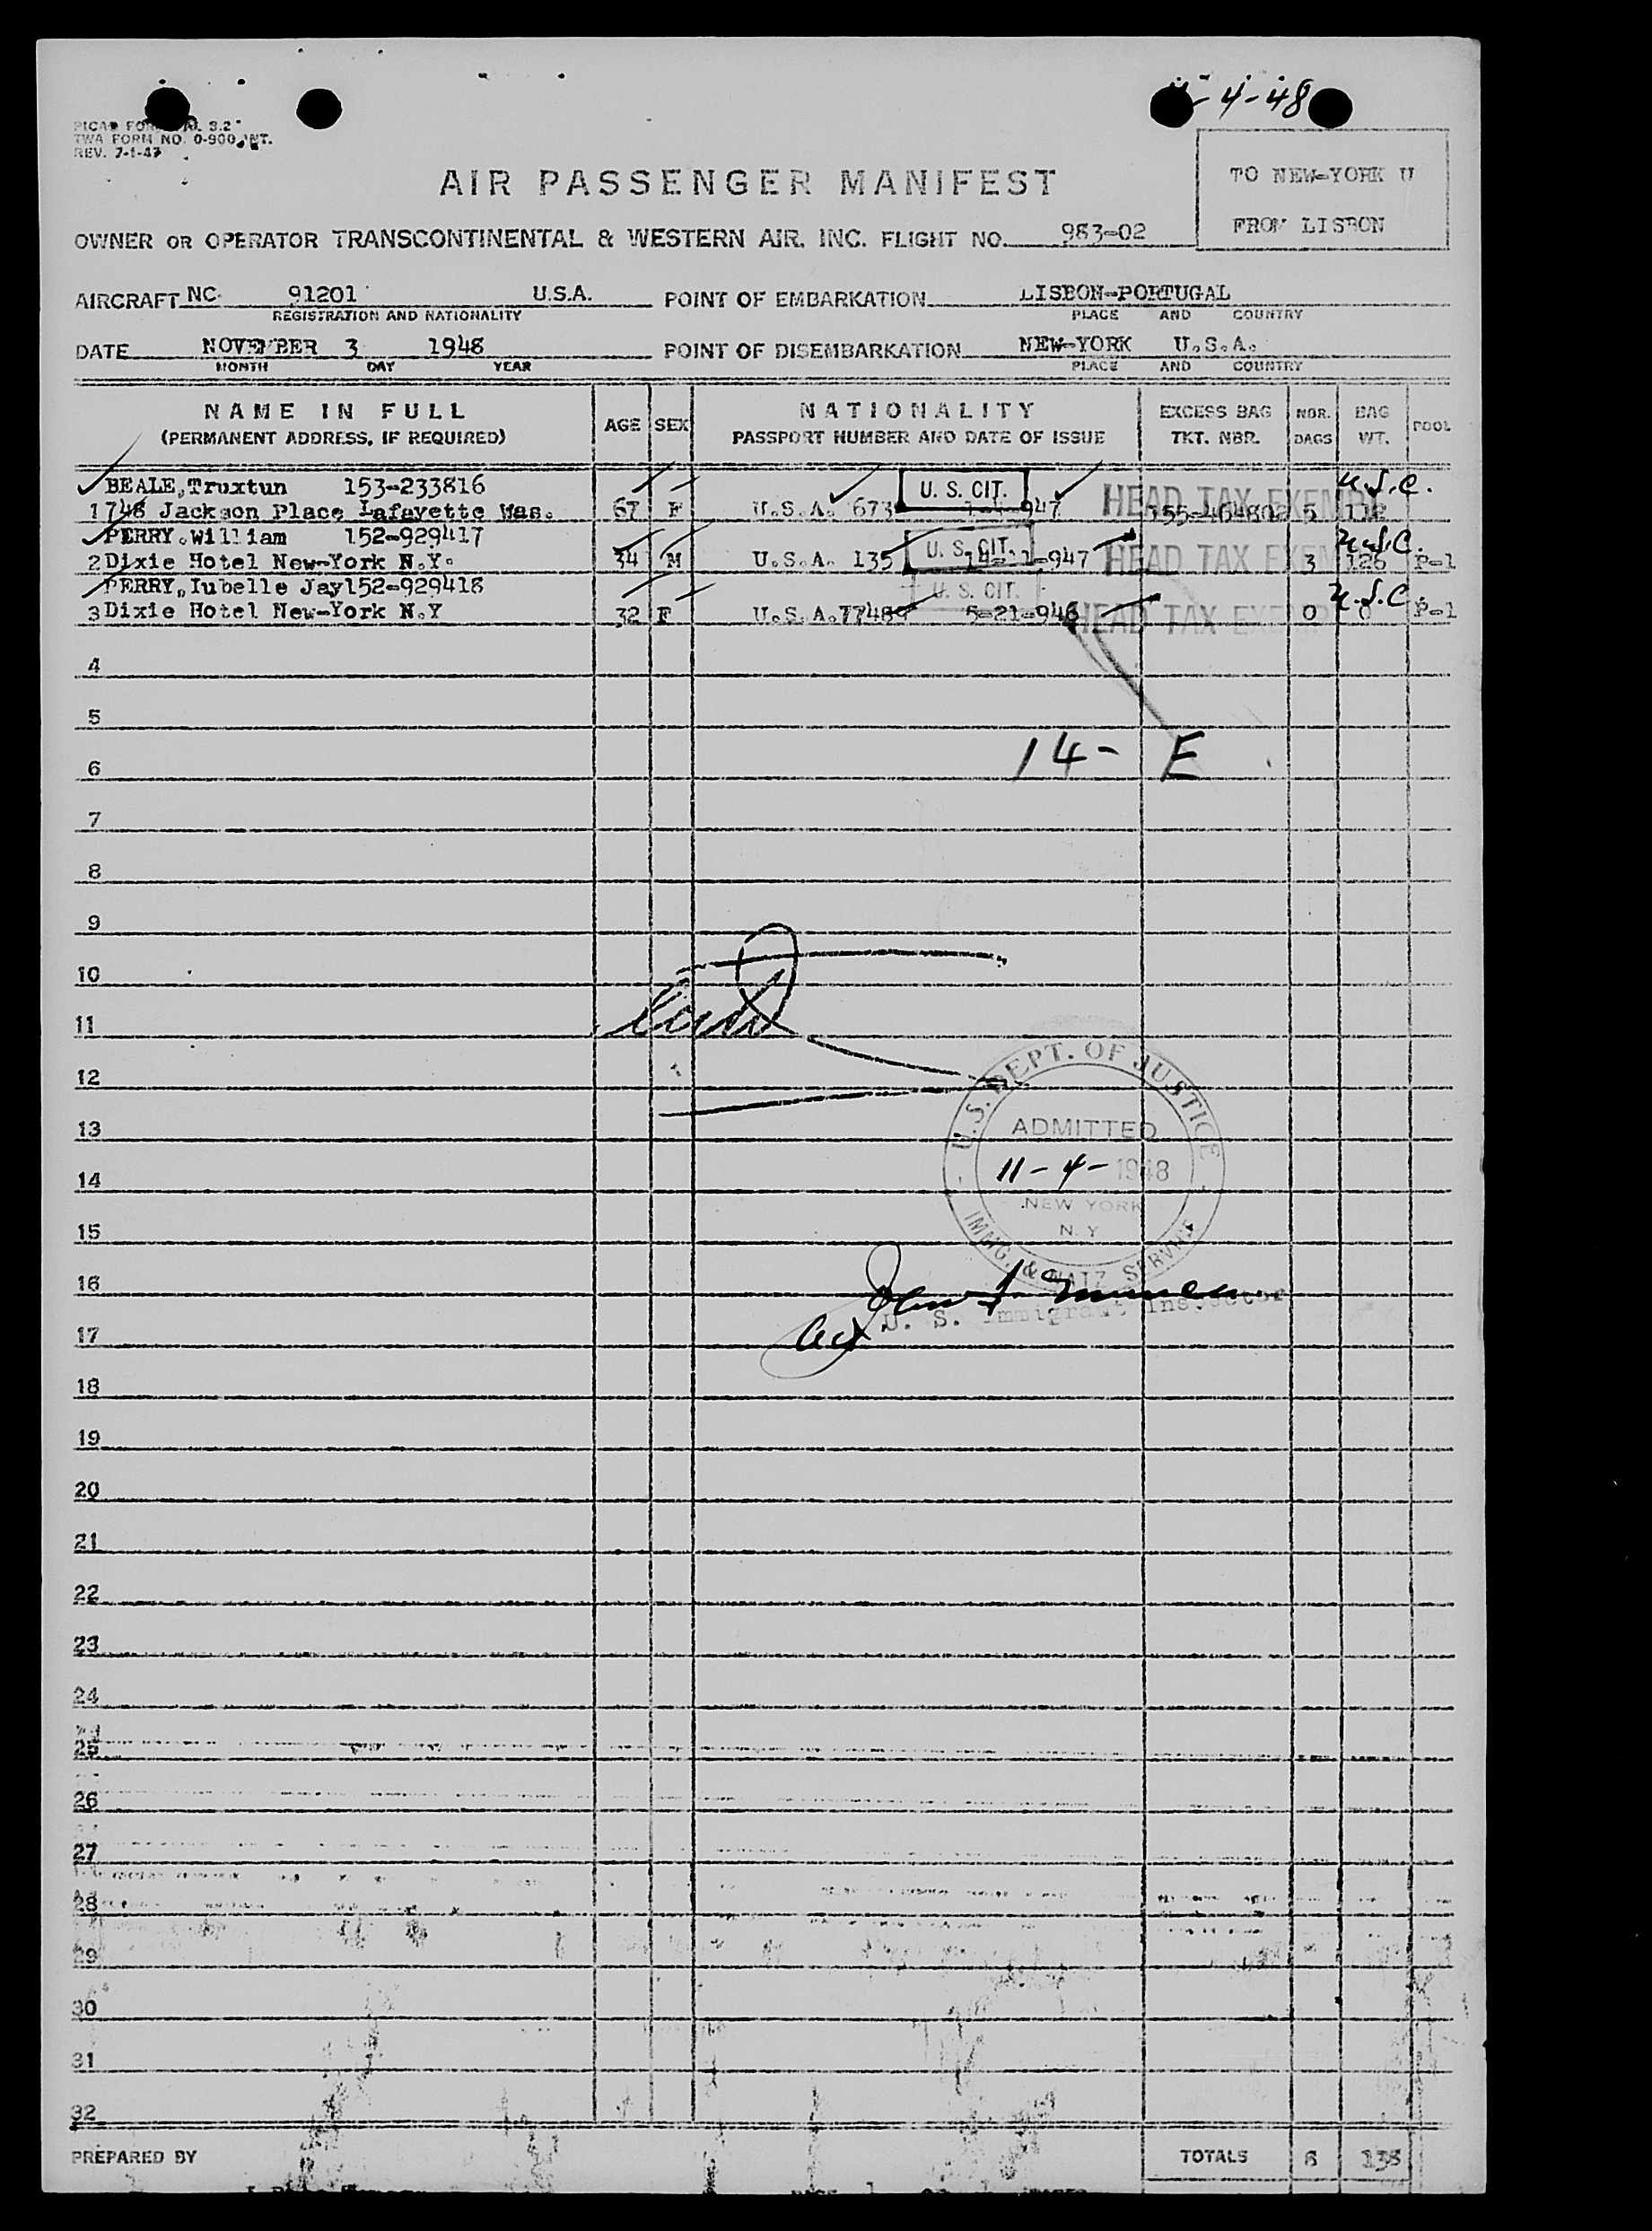 -4-48
TWA FORM NO. 0-900 INT.
REV. 7-1-47
AIR PASSENGER MANIFEST
TO NEW-YORK U
FROM LISBON
OWNER OR OPERATOR TRANSCONTINENTAL & WESTERN AIR, INC. FLIGHT NO. 983-02
AIRCRAFT NC 91201 U.S.A. POINT OF EMBARKATION LISBON-PORTUGAL
REGISTRATION AND NATIONALITY PLACE AND COUNTRY
DATE NOVEMBER 3 1948 POINT OF DISEMBARKATION NEW-YORK U.S.A.
MONTH DAY YEAR PLACE AND COUNTRY
NAME IN FULL AGE SEX NATIONALITY EXCESS BAG NBR. BAG POOL
(PERMANENT ADDRESS, IF REQUIRED) PASSPORT NUMBER AND DATE OF ISSUE TKT. NBR. BAGS WT.
BEALE,Truxtun 153-233816 U. S. CIT. U.S.C.
1 1748 Jackson Place Lafayette Was. 67 F U.S.A. 673 947 HEAD TAX EXEMPT 5
PERRY.William 152-929417 U. S. CIT. U.S.C.
2 Dixie Hotel New-York N.Y. 34 M U.S.A. 135 947 HEAD TAX EXEM 3 126 P-1
PERRY,Iubelle Jay152-929418 U. S. CIT. U.S.C.
3 Dixie Hotel New-York N.Y 32 F U.S.A.77489 5-21-946 HEAD TAX EXEMP 0 0 P-1
4
5
6 14- E
7
8
9
10
11
12
13
14
15
16
17
18
19
20
21
22
23
24
25
26
27
28
29
30
31
32
U.S. DEPT. OF JUSTICE
ADMITTED
11-4-1948
NEW YORK
N.Y
IMMG. & NATZ. SERVICE
U. S. Immigrant Inspector
PREPARED BY TOTALS 8 138